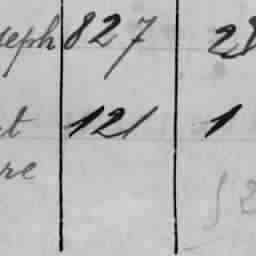 seph 827 28
t 121 1
re